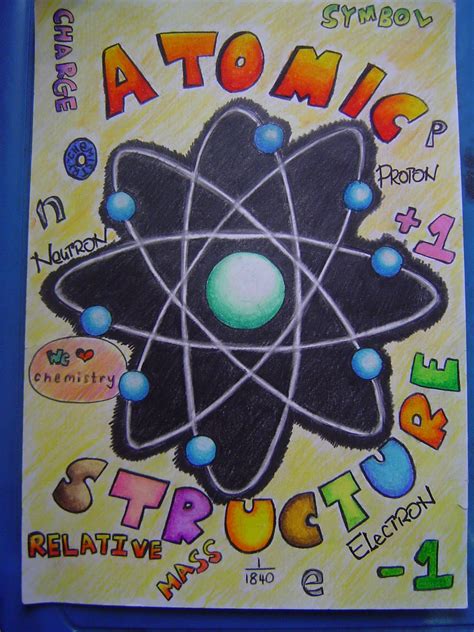 SYMBOL
CHARGE
ATOMIC
P
PROTON
n
NEUTRON
+1
We ❤
chemistry
STRUCTURE
ELECTRON
RELATIVE
MASS
1/1840
e
-1